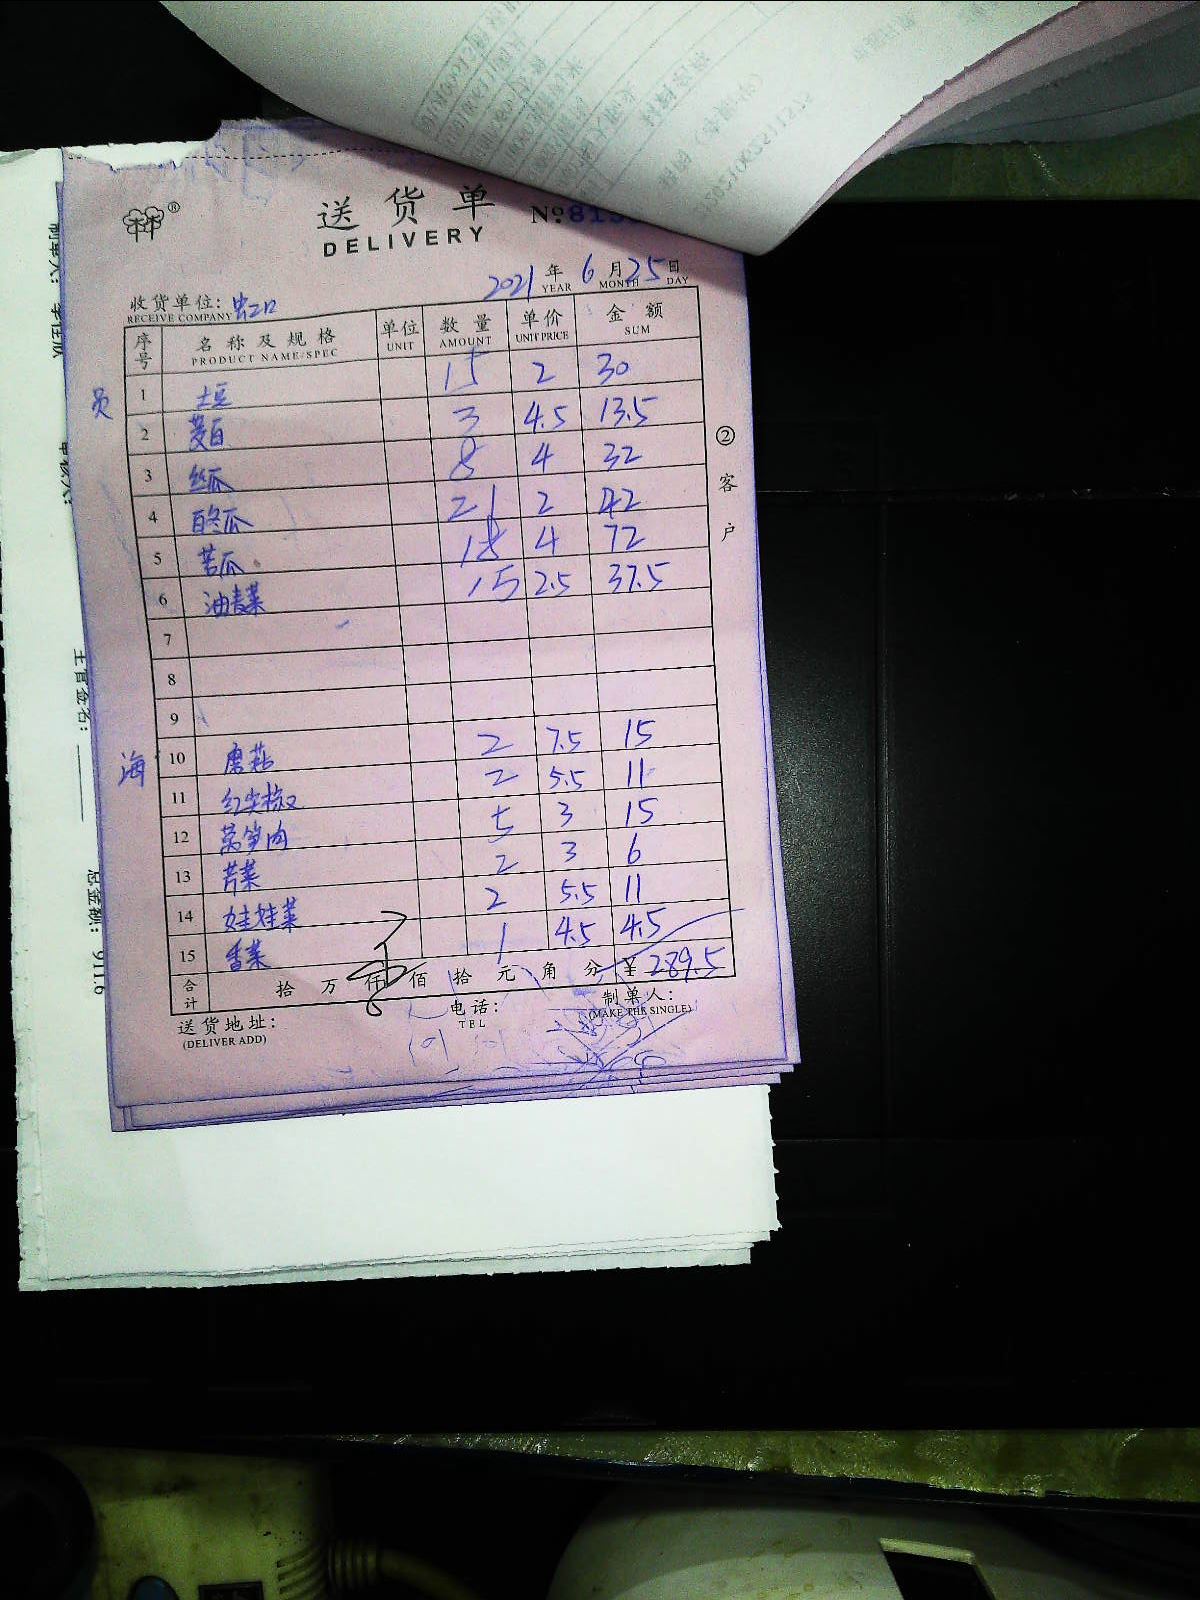 送货单
DELIVERY
№ 815
2021 年 6 月 25 日
YEAR MONTH DAY
收货单位: 虹口
RECEIVE COMPANY
序号 名称及规格 单位 数量 单价 金额
PRODUCT NAME/SPEC UNIT AMOUNT UNIT PRICE SUM
员
1 土豆 15 2 30
2 茭白 3 4.5 13.5
3 丝瓜 8 4 32
4 白冬瓜 21 2 42
5 苦瓜 18 4 72
6 油麦菜 15 2.5 37.5
7
8
9
海
10 蘑菇 2 7.5 15
11 红尖椒 2 5.5 11
12 莴笋肉 5 3 15
13 芹菜 2 3 6
14 娃娃菜 2 5.5 11
15 香菜 1 4.5 4.5
合计 拾 万 仟 佰 拾 元 角 分 ¥ 289.5
送货地址: 电话: 制单人:
(DELIVER ADD) TEL (MAKE THE SINGLE)
②客户
制单人:
审核人:
主管签名:
总金额: 911.6